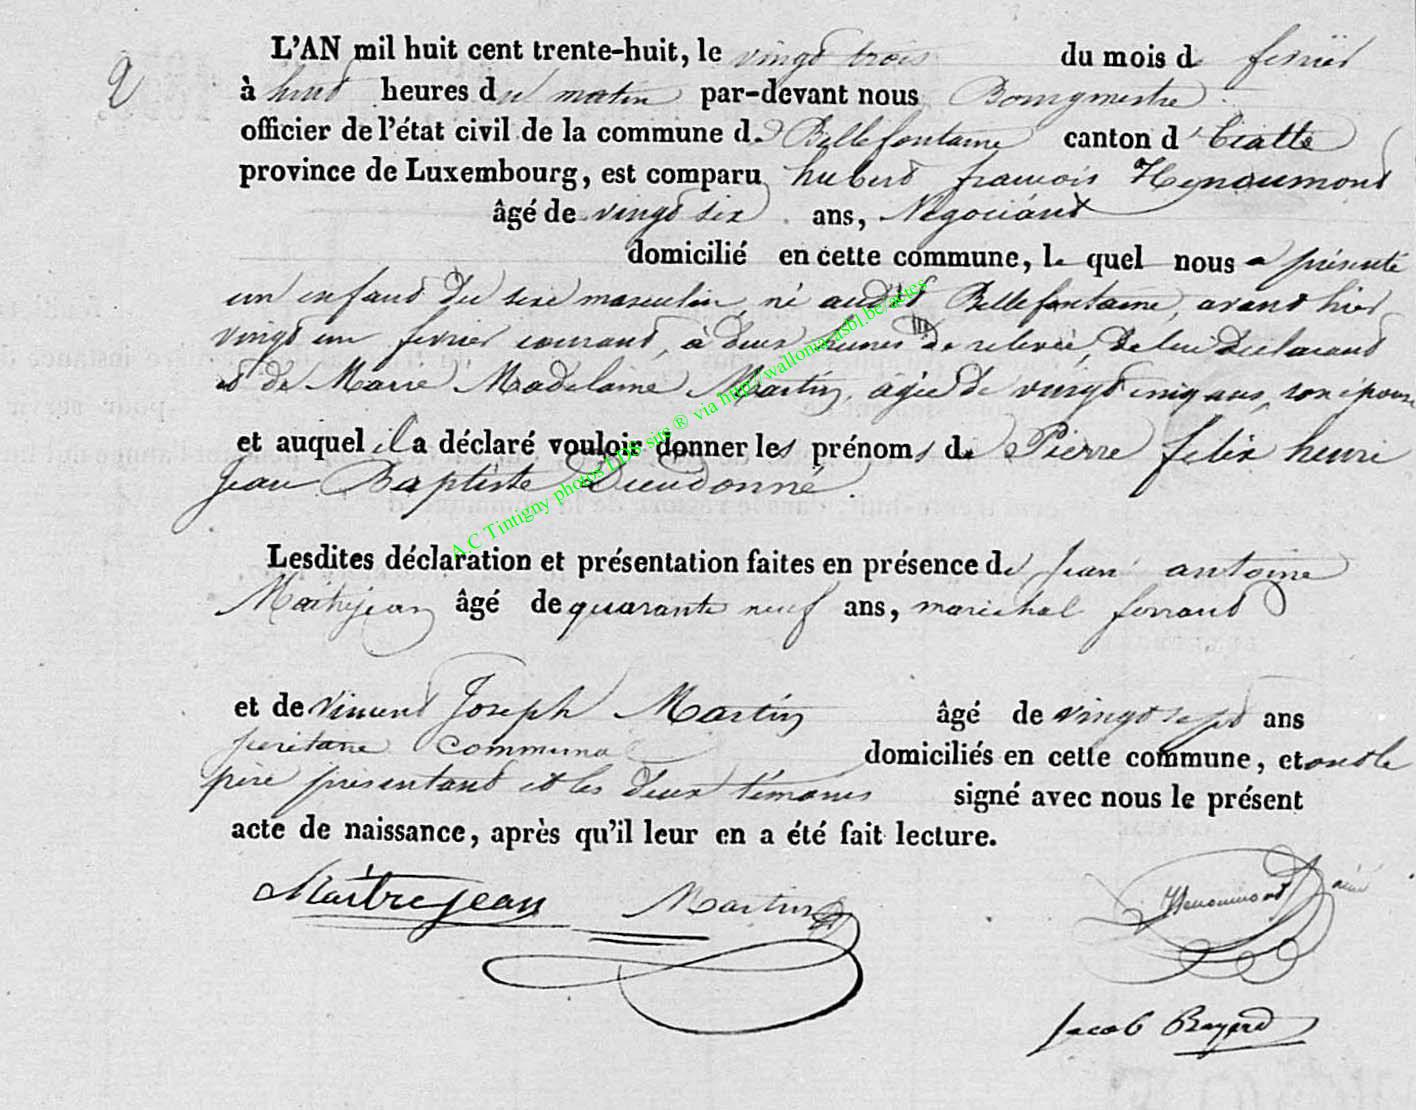 2
L'AN mil huit cent trente-huit, le vingt trois du mois de fevrier
à huit heures du matin par-devant nous Bourgmestre
officier de l'état civil de la commune de Bellefontaine canton d'Etalle
province de Luxembourg, est comparu hubert françois Henoumont
âgé de vingt six ans, Négociant
domicilié en cette commune, le quel nous a présenté
un enfant du sexe masculin, né audit Bellefontaine, avant hier
vingt un fevrier courant, à deux heures de relevée, de lui declarant
et de Marie Madelaine Martin, agée de vingt cinq ans, son épouse
et auquel il a déclaré vouloir donner les prénoms de Pierre felix henri
Jean Baptiste Dieudonné.
A.C Tintigny photos LDS site ® via http://wallonia.asbl.be/actes
Lesdites déclaration et présentation faites en présence de Jean antoine
Maitrejean âgé de quarante neuf ans, marichal ferrant
et de Vincent Joseph Martin âgé de vingt sept ans
communal domiciliés en cette commune, et ont le
père présentant et les deux témoins signé avec nous le présent
acte de naissance, après qu'il leur en a été fait lecture.
Maîtrejean Martin Henoumont
Jacob Bayard